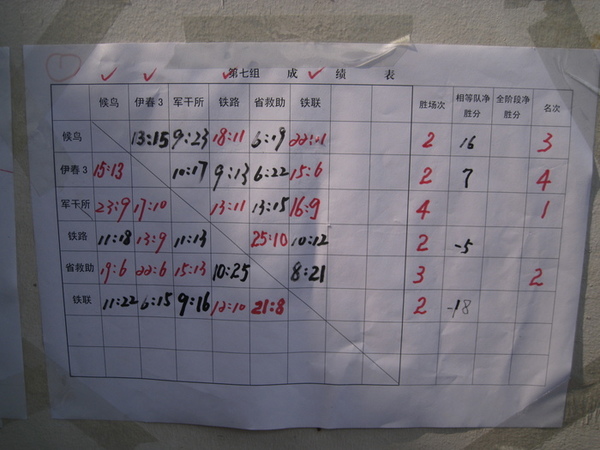 1
第七组 成绩表
候鸟 伊春3 军干所 铁路 省救助 铁联 胜场次 相等队净胜分 全阶段净胜分 名次
候鸟 13:15 9:23 18:11 6:19 22:11 2 16 3
伊春3 15:13 10:17 9:13 6:22 15:6 2 7 4
军干所 23:9 17:10 13:11 13:15 16:9 4 1
铁路 11:18 13:9 11:13 25:10 10:12 2 -5
省救助 19:6 22:6 15:13 10:25 8:21 3 2
铁联 11:22 6:15 9:16 12:10 21:8 2 -18